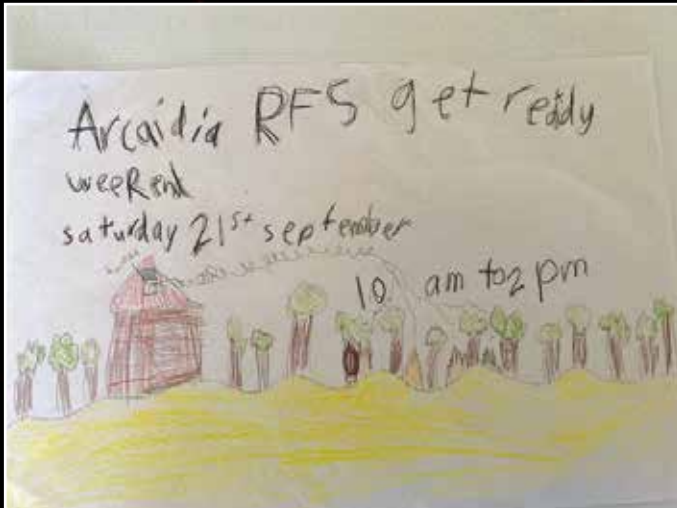 Arcaidia RFS get ready
weeRend
saturday 21st september
10 am to 2 pm